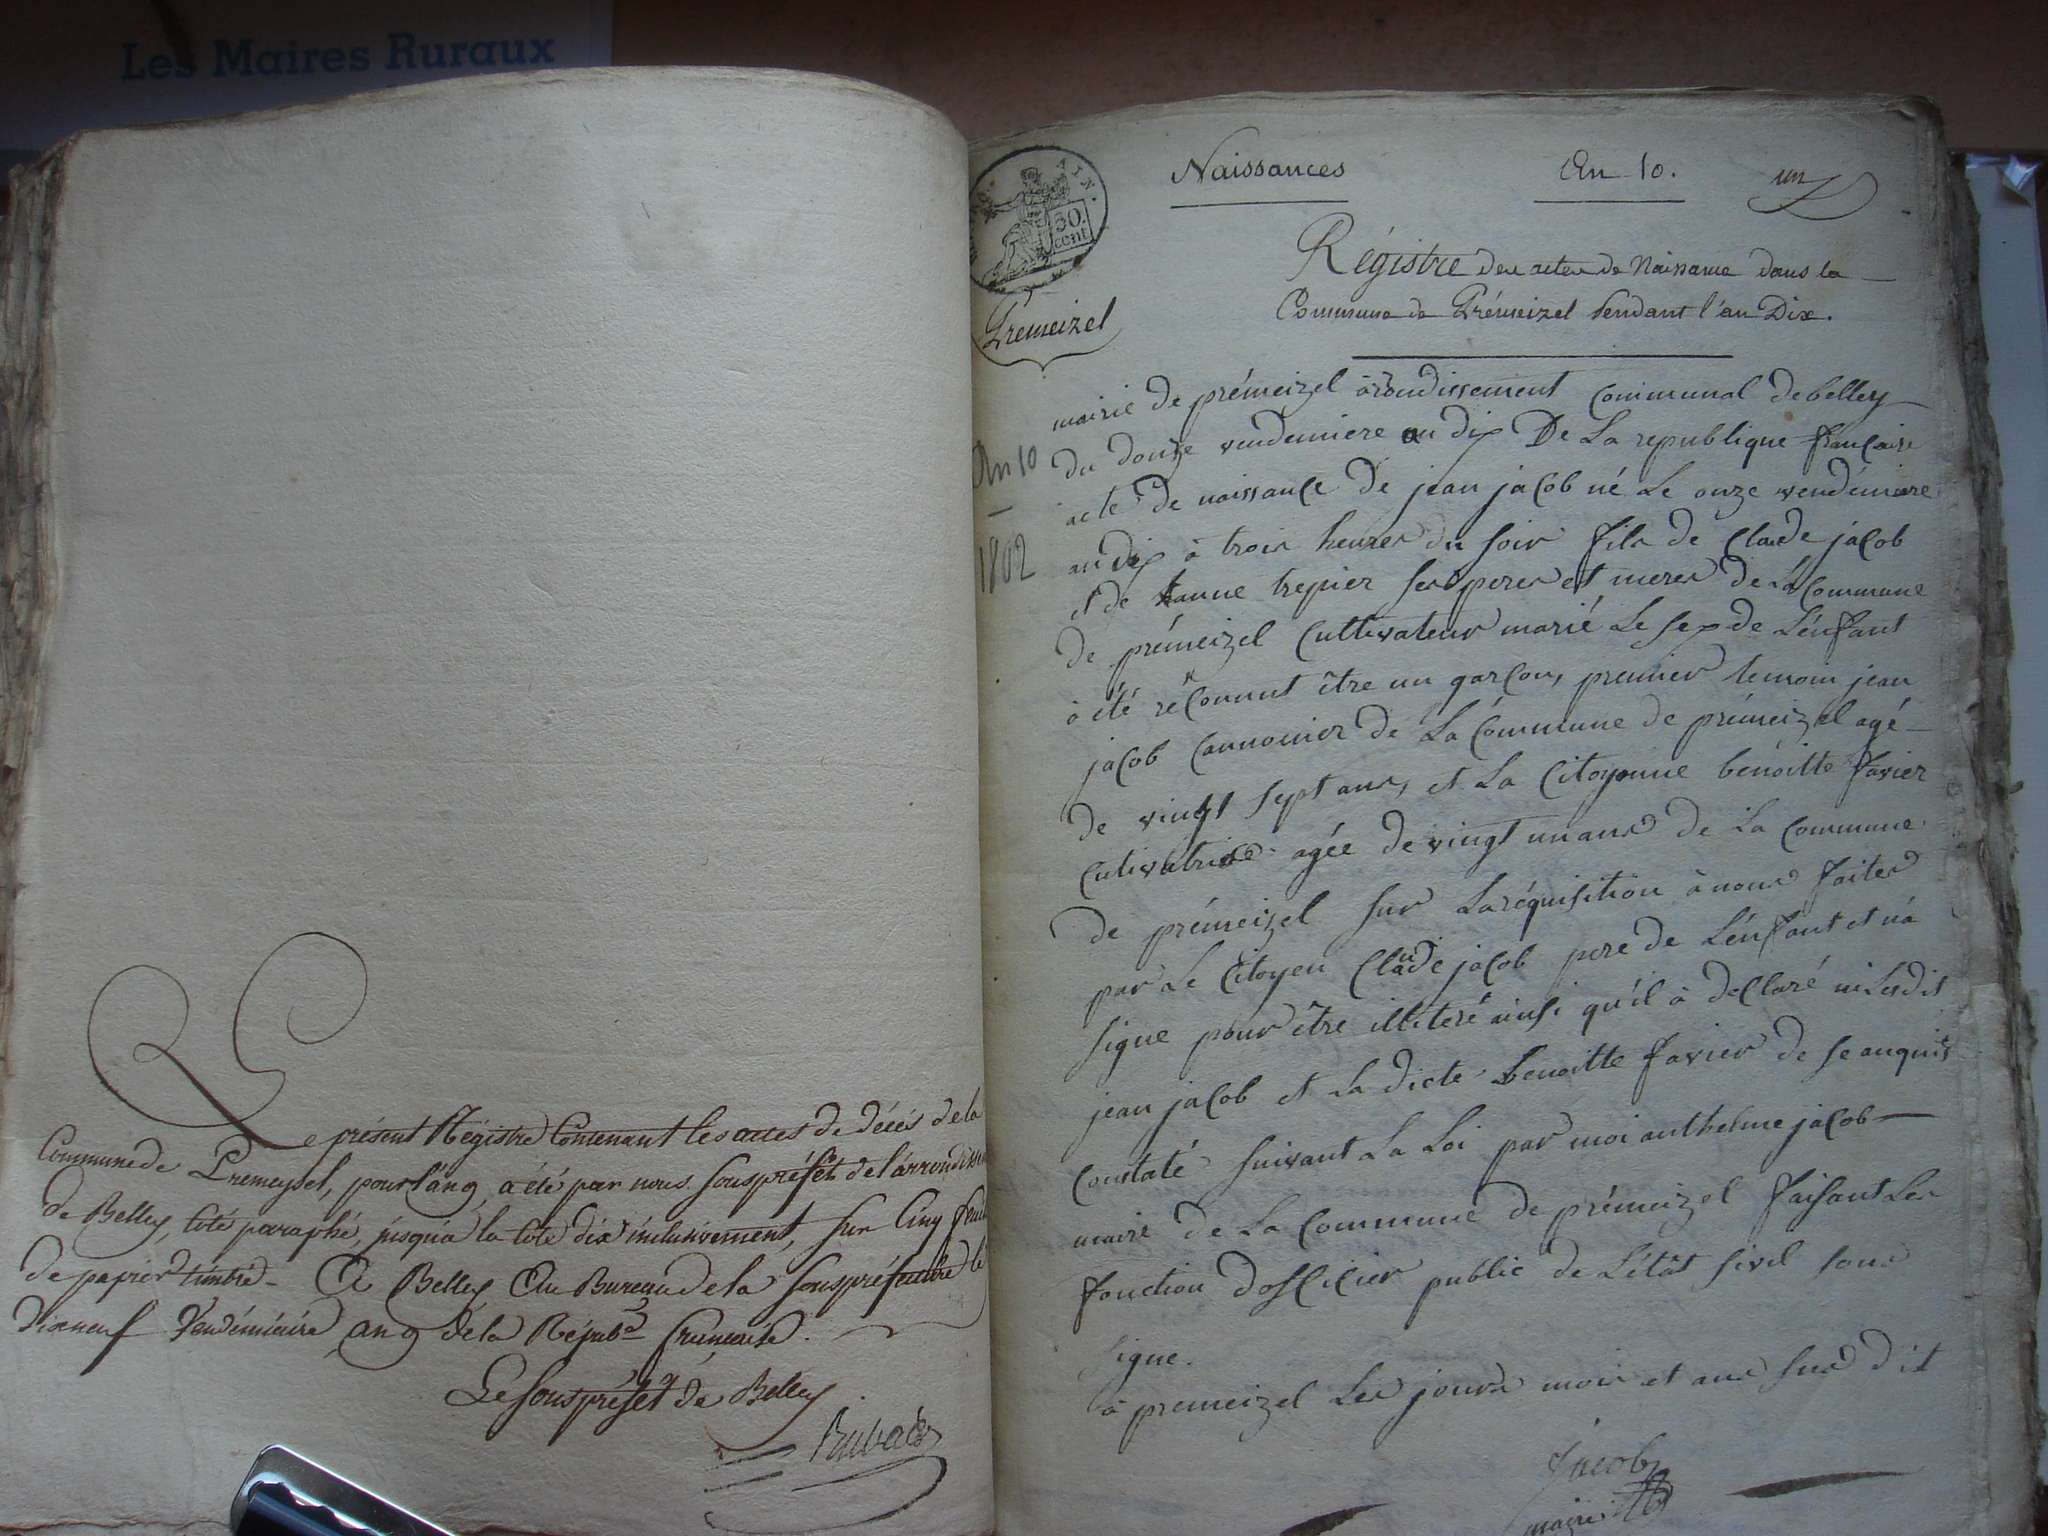 Les Maires Ruraux
Le présent Régistre Contenant les actes de décés de la
Commune de Premeysel, pour l'an 9, a été par nous souspréfet de l'arrondissem
de Belley, coté paraphé, jusqu'a la cote dix inclusivement, sur Cinq feuil
de papier timbré - A Belley Au Bureau de la souspréfecture le
dixneuf Vendémiaire an 9 de la Répub. francaise.
Le souspréfet de Belley
AIN.
50.
cent
Prémeizel
Naissances An 10. un
Régistre des actes de Naissance dans la
Commune de Prémeizel Pendant l'an Dix.
An 10
1802
mairie de prémeizel arondissement communal de belley
du douze vendemiere an dix De La republique francaise
acte de naissance de jean jacob né Le onze vendémiere
an dix à trois heures du soir fils de Claude jacob
et de jeanne trepier ses peres et meres de La Commune
de prémeizel Cultivateur marié Le sexe de L'énfant
à été reconnut être un garcon, premier temoin jean
jacob Cannonier de La Commune de prémeizel agé
de vingt sept ans, et La Citoyenne benoitte favier
Cutivatrice agée de vingt un ans de La Commune
de prémeizel sur La réquisition à nous faites
par Le Citoyen Claude jacob pere de L'énfant et n'a
signe pour être illiteré ainsi qu'il à declaré ni Lesdis
jean jacob et La dicte benoitte favier de se anquis
Constaté suivant La Loi par moi anthelme jacob
maire de La Commune de prémeizel faisant Les
fonction d'officier public de L'état sivil sous
signe.
à premeizel Les jours mois et ans sus dit
Jacob
maire